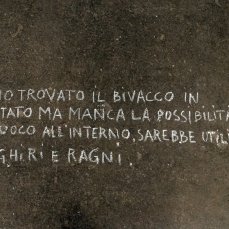 HO TROVATO IL BIVACCO IN
STATO MA MANCA LA POSSIBILITÀ
FUOCO ALL'INTERNO, SAREBBE UTIL
GHIRI E RAGNI.